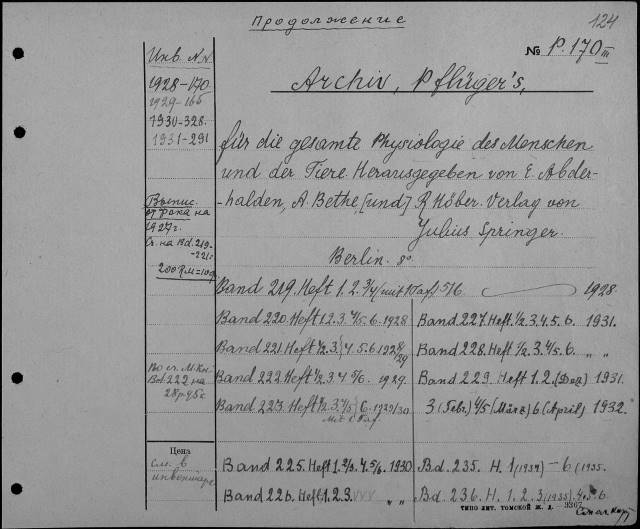 Продолжение
124
№ P. 170 III
Инв. №№
1928-170
1929-166
1930-328.
1931-291
Archiv, Pflüger's,
für die gesamte Physiologie des Menschen
und der Tiere. Herausgegeben von E. Abder-
-halden, A. Bethe, [und] R. Höber. Verlag von
Julius Springer.
Berlin. 8°
Выпис.
на
1927г.
Сч. на Bd. 219-
-221
200 RM =
Band 219. Heft 1. 2. 3/4 (mit 1 Taf.) 5/6 1928.
Band 220. Heft 1. 2. 3. 4/5. 6. 1928
Band 221. Heft 1/2. 3/4. 5. 6 1928/29
Band 222. Heft 1/2. 3. 4 5/6. 1929.
Band 223. Heft 1/2. 3. 4/5/6. 1929/30
Mit 1 Taf.
Band 227. Heft. 1/2. 3. 4. 5. 6. 1931.
Band 228. Heft 1/2. 3. 4/5. 6. " "
Band 229. Heft 1. 2. (Dez) 1931.
3 (Febr.) 4/5 (März) 6 (April) 1932.
По сч. М. Кн.
Bd. 222 на
Цена
См. в
инвентаре
Band 225. Heft 1. 2/3. 4. 5/6. 1930
Band 226. Heft. 1. 2. 3. VVV " "
Bd. 235. H. 1 (1934) - 6 (1935.
Bd. 236. H. 1. 2. 3 (1935). 4. 5. 6.
ТИПО ЛИТ. ТОМСКОЙ Ж. Д. - 3367
См. на об.